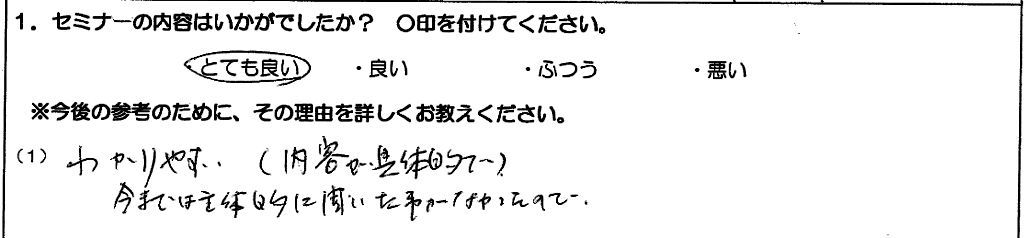 1. セミナーの内容はいかがでしたか? ○印を付けてください。
・とても良い ・良い ・ふつう ・悪い
※今後の参考のために、その理由を詳しくお教えください。
(1) わかりやすい (内容が具体的で)
今までは主体的に聞いた事がなかったので